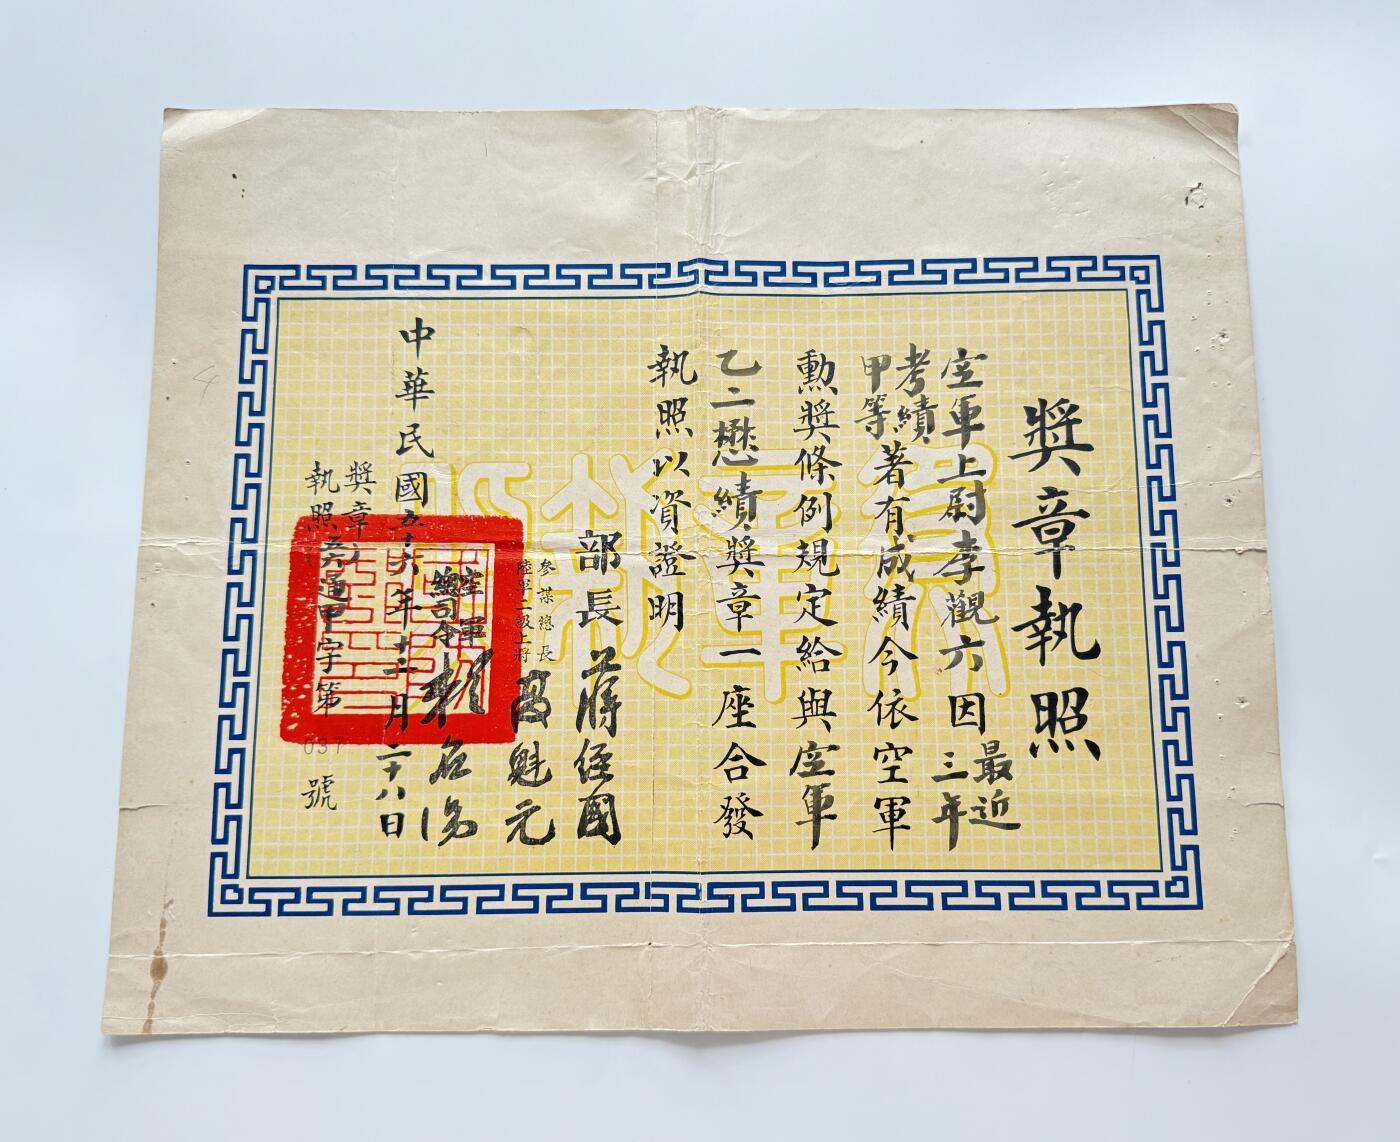 獎章執照
空軍上尉李觀六因最近三年
考績甲等著有成績今依空軍
勳獎條例規定給與空軍
乙二懋績獎章一座合發
執照以資證明
部長 蔣經國
參謀總長
陸軍二級上將 高魁元
空軍
總司令 賴名湯
中華民國五十六年十二月二十八日
獎章
執照 通甲字第037號